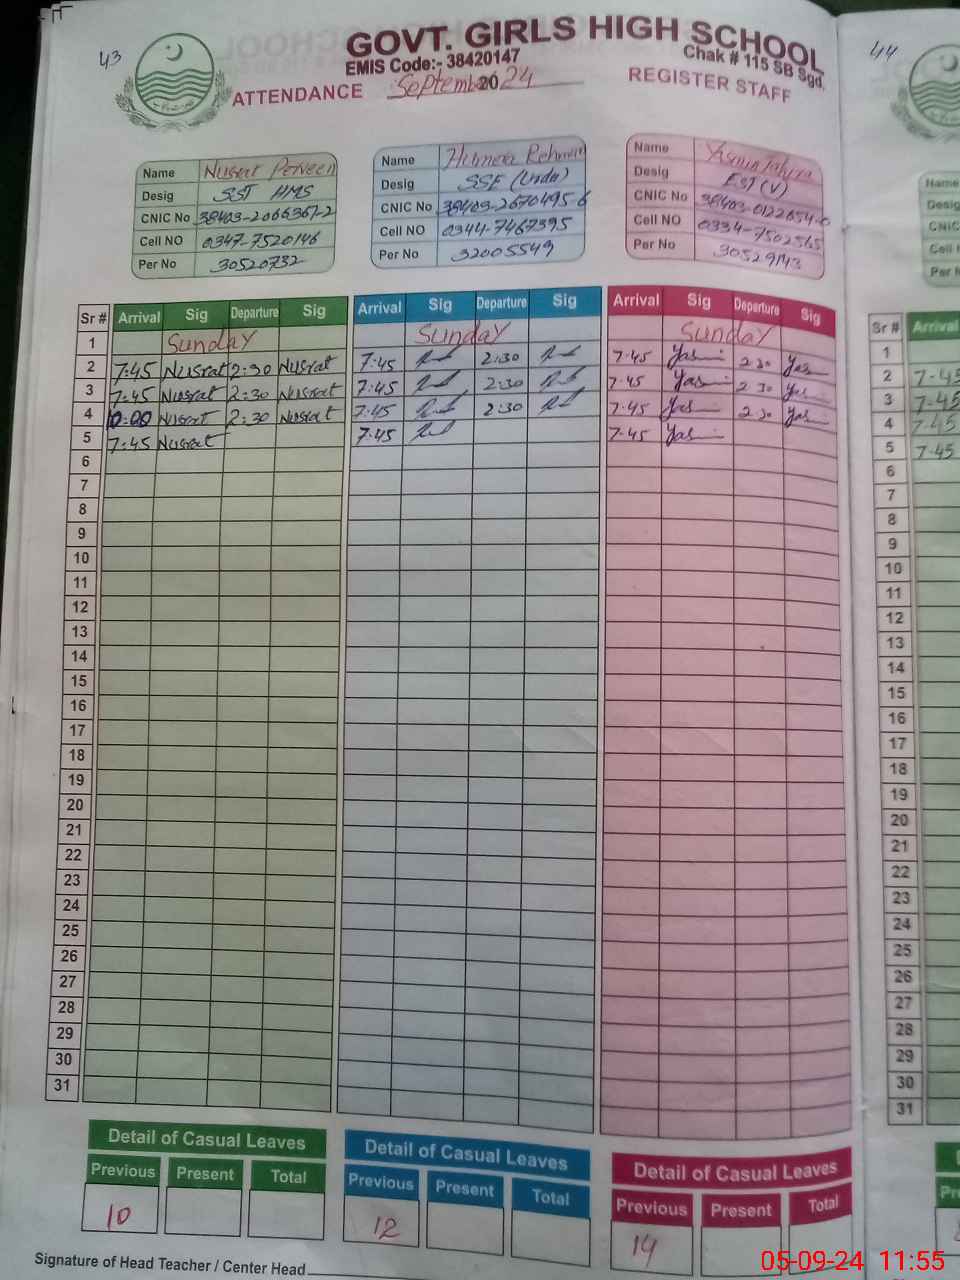 43
GOVT. GIRLS HIGH SCHOOL
EMIS Code:- 38420147
Chak # 115 SB Sgd.
ATTENDANCE September 2024 REGISTER STAFF
44
Name Nusrat Perveen
Desig SST HMS
CNIC No 38403-2066361-2
Cell NO 0347-7520146
Per No 30520732
Name Humera Rehman
Desig SSE (Urdu)
CNIC No 38403-2670495-6
Cell NO 0344-7467395
Per No 32005549
Name Yasmin Tahira
Desig EST(V)
CNIC No 38403-0122654-0
Cell NO 0334-7502565
Per No 30529143
Name
Desig
CNIC
Cell
Per N
Sr # Arrival Sig Departure Sig Arrival Sig Departure Sig Arrival Sig Departure Sig Sr # Arrival
1 Sunday Sunday Sunday 1
2 7:45 Nusrat 2:30 Nusrat 7:45 2:30 7-45 Yas 2 30 Yas 2 7-45
3 7:45 Nusrat 2:30 Nusrat 7:45 2:30 7-45 Yas 2 30 Yas 3 7-45
4 10:00 Nusrat 2:30 Nusrat 7:45 2:30 7-45 Yas 2 30 Yas 4 7-45
5 7:45 Nusrat 7:45 7-45 Yas 5 7-45
6 6
7 7
8 8
9 9
10 10
11 11
12 12
13 13
14 14
15 15
16 16
17 17
18 18
19 19
20 20
21 21
22 22
23 23
24 24
25 25
26 26
27 27
28 28
29 29
30 30
31 31
Detail of Casual Leaves Detail of Casual Leaves Detail of Casual Leaves
Previous Present Total Previous Present Total Previous Present Total Pr
10 12 14
Signature of Head Teacher / Center Head
05-09-24 11:55